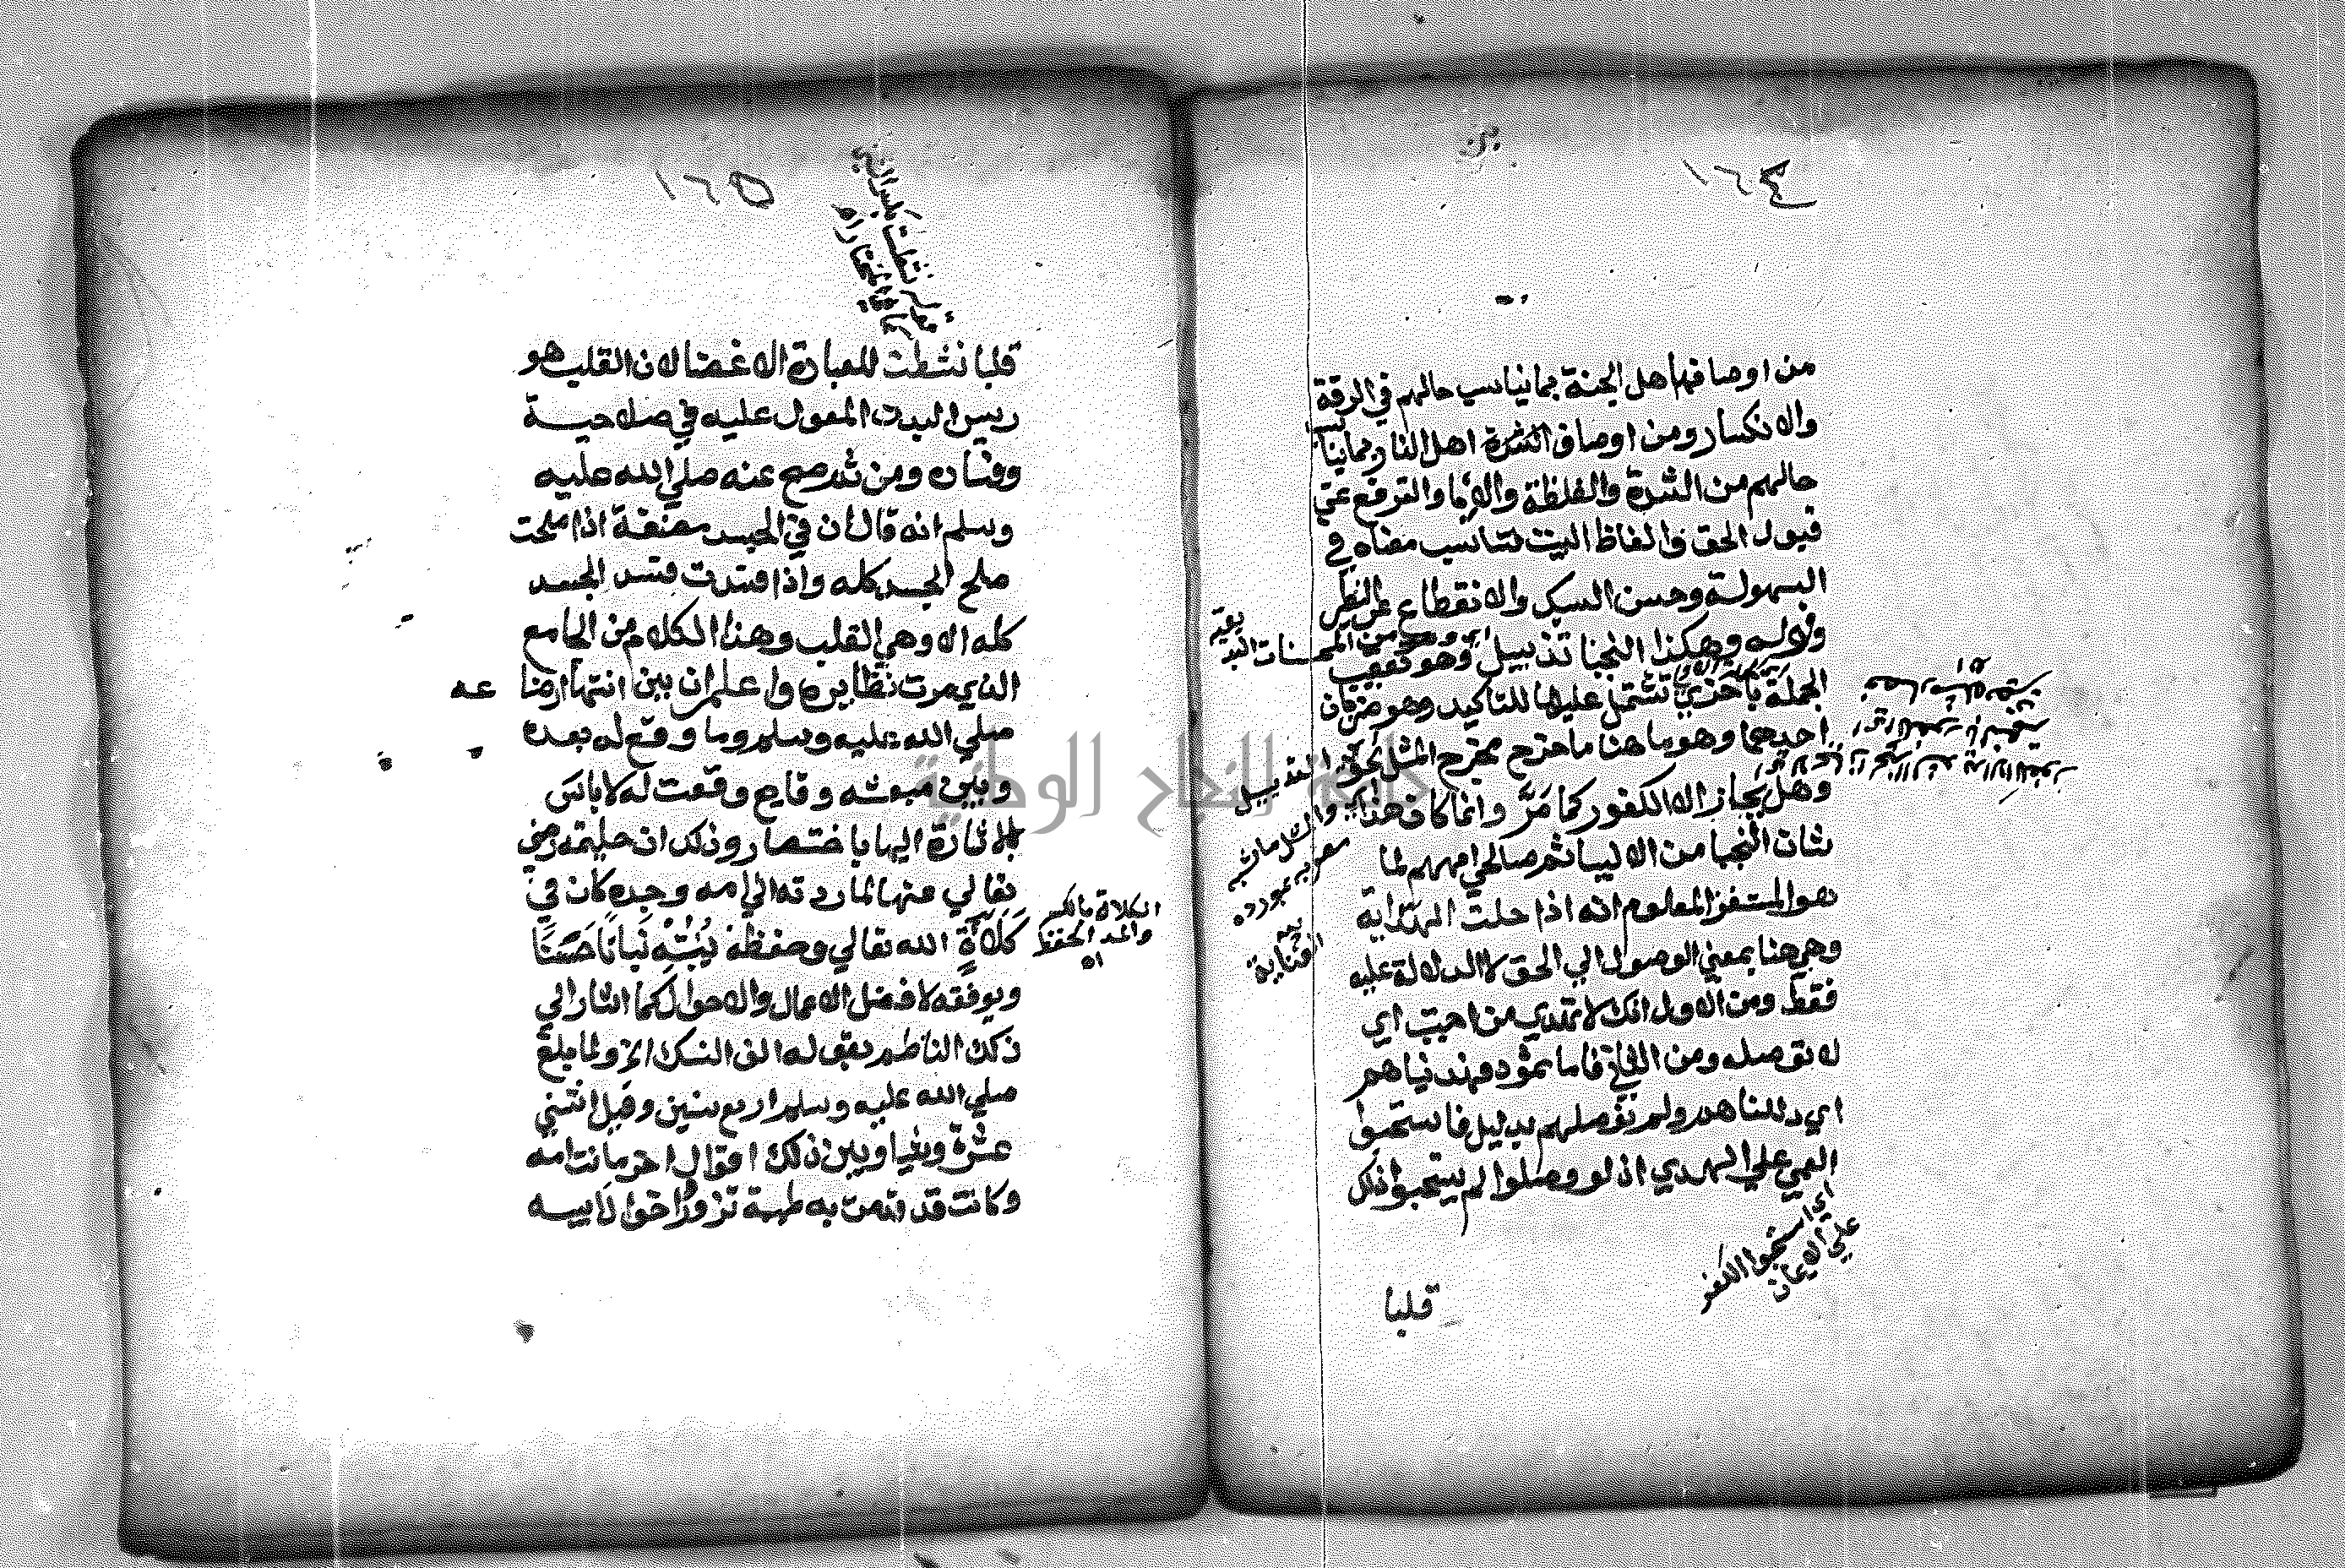 ١٦٤
من اوصافهم اهل الجنة بما يناسب حالهم في الرقة
والانكسار ومن اوصاف الشدة اهل النار بما يناسب
حالهم من الشدة والغلظة والابا والترفع عن
قبول الحق والفاظ البيت تناسب معناه في
السهولة وحسن السبك والانقطاع عن النظير
وقوله وهكذا النجبا تذييل وهو تعقيب
الجملة باخري تشتمل عليها للتاكيد وهو ضربان
احدهما وهو ما هنا ما خرج مخرج المثل
وهل يجاز الا الكفور كما مر وانما كان هذا
شان النجبا من الانبيا ثم صالحي اممهم لما
هو المستقر المعلوم انه اذا حلت الهداية
وهي هنا بمعني الوصول الي الحق لا الدلالة عليه
فقط ومن الاول انك لا تهدي من احببت اي
لا توصله ومن الثاني فاما ثمود فهديناهم
اي دللناهم ولم نوصلهم بدليل فاستحبوا
العمي علي الهدي اذ لو وصلوا لم يستحبوا ذلك
اي استحبوا الكفر
علي الايمان
قلبا
١٦٥
قلبا نشطت للعبادة الاعضا لان القلب هو
ريس البدن المعول عليه في صلاحية
وفساده ومن ثم صح عنه صلي الله عليه
وسلم انه قال ان في الجسد مضغة اذا صلحت
صلح الجسد كله واذا فسدت فسد الجسد
كله الا وهي القلب وهذا الكلام من الجامع
الذي مرت نظايره واعلم ان بين انتهاء رضاعه
صلي الله عليه وسلم وما وقع له بعده
وبين مبعثه وقايع وقعت له لا باس
بالاشارة اليها باختصار وذلك ان حليمة رضي
تعالي عنها لما ردته الي امه وجده كان في
كلاءة الله تعالي وحفظه ينبته نباتا حسنا
ويوفقه لافضل الاعمال والاحوال كما اشار الي
ذلك الناظم بقوله الف النسك الخ ولما بلغ
صلي الله عليه وسلم اربع سنين وقيل اثنتي
عشرة وقيل وبين ذلك اقوال اخر ماتت امه
وكانت قد قدمت به طيبة تزور اخوال ابيه
الكلاة بالكسر
والمد الحفظ
اه